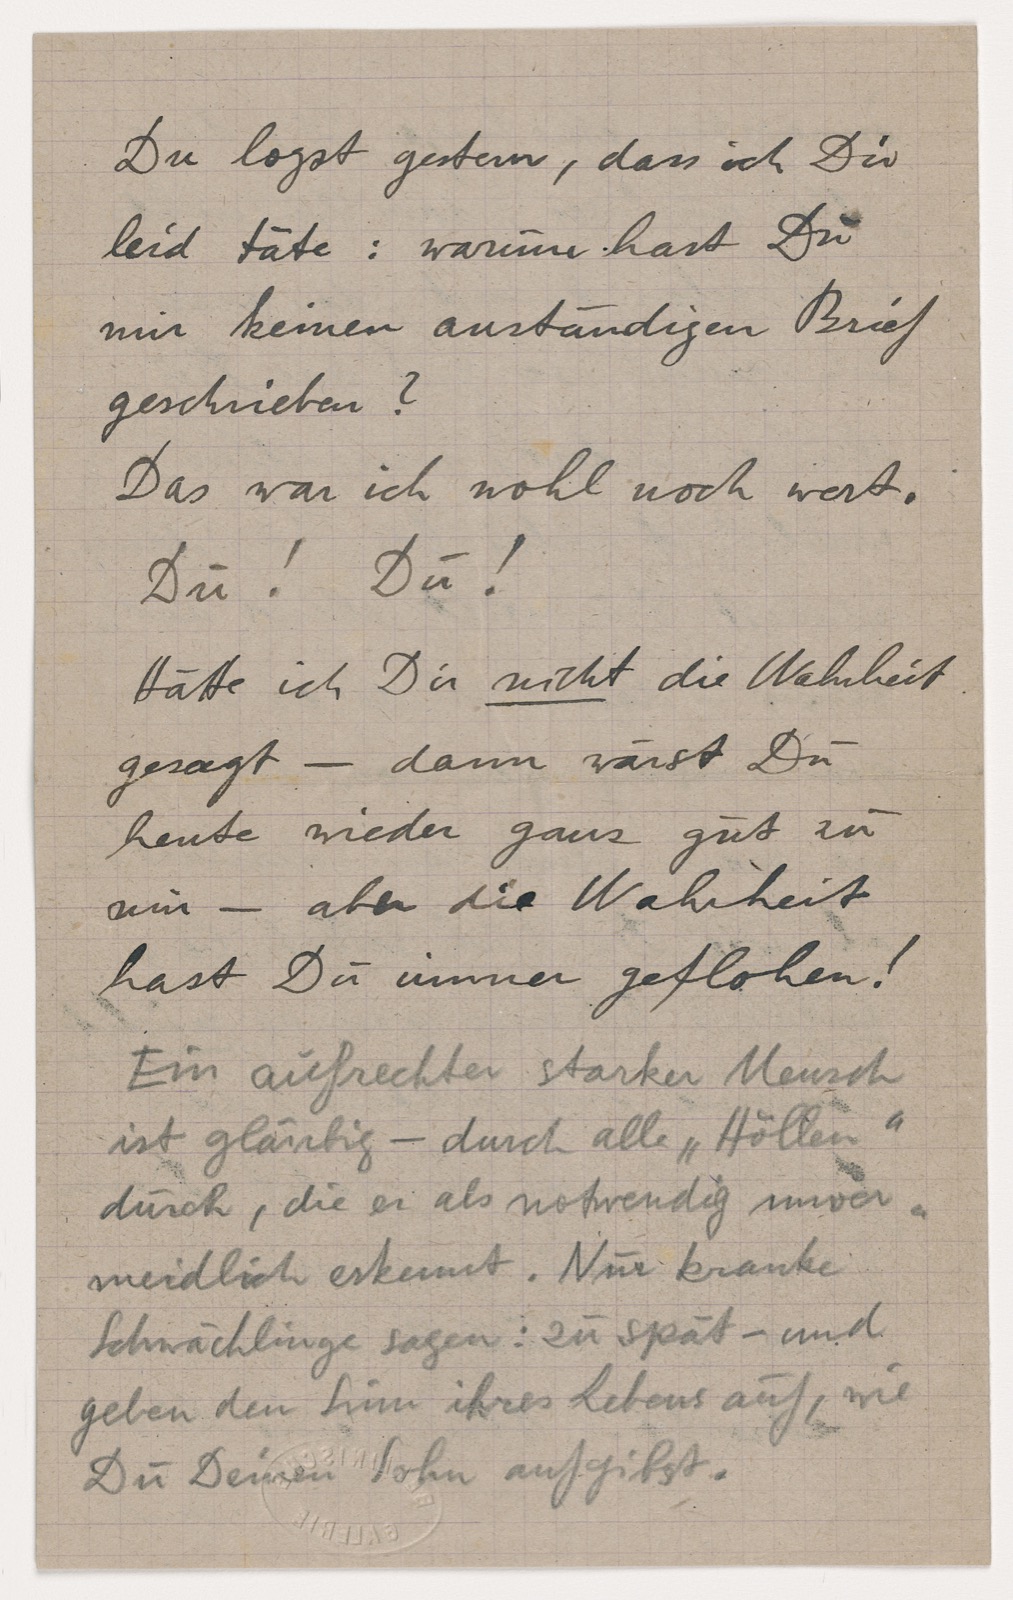 Du logst gestern, dass ich Dir
leid täte: warum hast Du
mir keinen anständigen Brief
geschrieben?
Das war ich wohl noch wert.
Du! Du!
Hätte ich Dir nicht die Wahrheit
gesagt — dann wärst Du
heute wieder ganz gut zu
mir — aber die Wahrheit
hast Du immer geflohen!
Ein aufrechter starker Mensch
ist gläubig — durch alle „Höllen“
durch, die er als notwendig unver-
meidlich erkennt. Nur kranke
Schwächlinge sagen: zu spät — und
geben den Sinn ihres Lebens auf, wie
Du Deinen Sohn aufgibst.
GALERIE